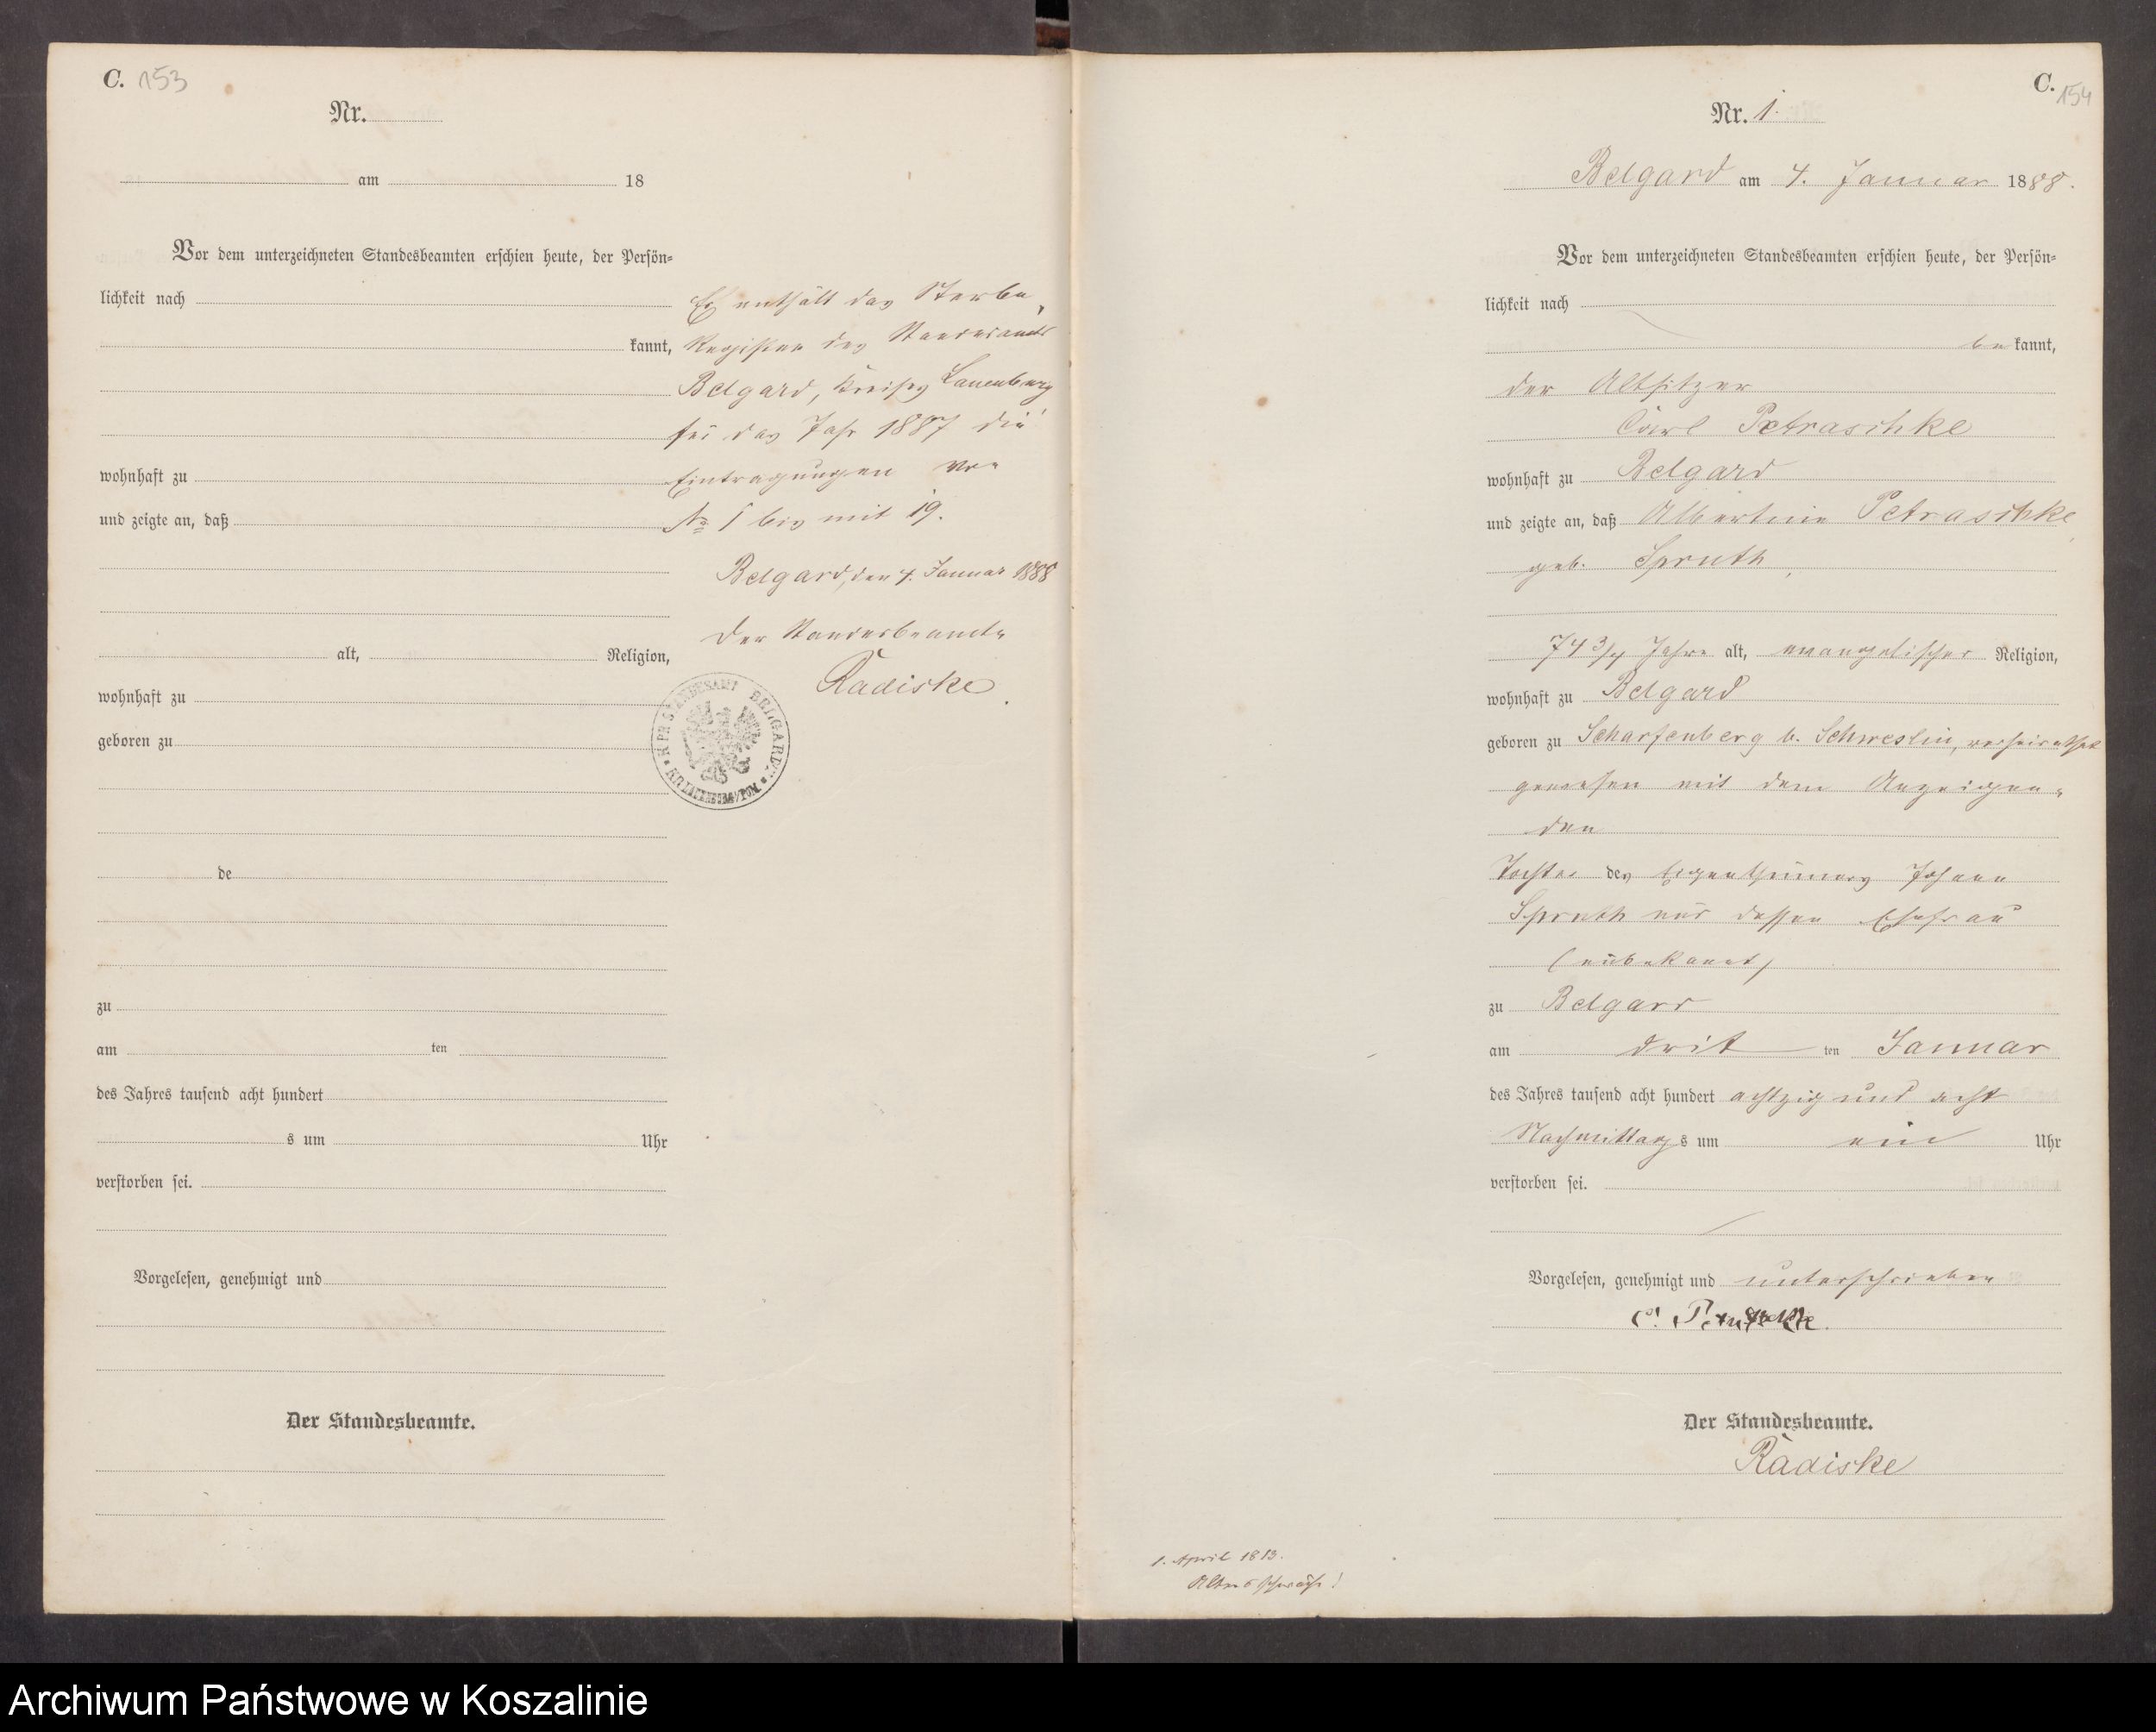 C. 153
Nr.
am 18
Vor dem unterzeichneten Standesbeamten erschien heute, der Persön-
lichkeit nach
kannt,
wohnhaft zu
und zeigte an, daß
alt, Religion,
wohnhaft zu
geboren zu
de
zu
am ten
des Jahres tausend acht hundert
s um Uhr
verstorben sei.
Vorgelesen, genehmigt und
Der Standesbeamte.
Es enthält das Sterbe-
Register des Standesamts
Belgard, Kreises Lauenburg
für das Jahr 1887 die
Eintragungen von
No 1 bis mit 19.
Belgard, den 4. Januar 1888
Der Standesbeamte
Radiske
K. PR. STANDESAMT BELGARD
KR. LAUENBURG/POM.
C. 154
Nr. 1.
Belgard am 4. Januar 1888.
Vor dem unterzeichneten Standesbeamten erschien heute, der Persön-
lichkeit nach
be kannt,
der Altsitzer
Carl Petraschke
wohnhaft zu Belgard
und zeigte an, daß Albertine Petraschke
geb. Spruth,
74 3/4 Jahre alt, evangelischer Religion,
wohnhaft zu Belgard
geboren zu Scharfenberg b. Schweslin, verheirathet
gewesen mit dem Anzeigen-
den
Tochter des Eigenthümers Johann
Spruth und dessen Ehefrau
(unbekannt)
zu Belgard
am drit ten Januar
des Jahres tausend acht hundert achtzig und acht
Nachmittags um ein Uhr
verstorben sei.
Vorgelesen, genehmigt und unterschrieben
C. Petraschke.
Der Standesbeamte.
Radiske
1. April 1813.
Altersschwäche!
Archiwum Państwowe w Koszalinie